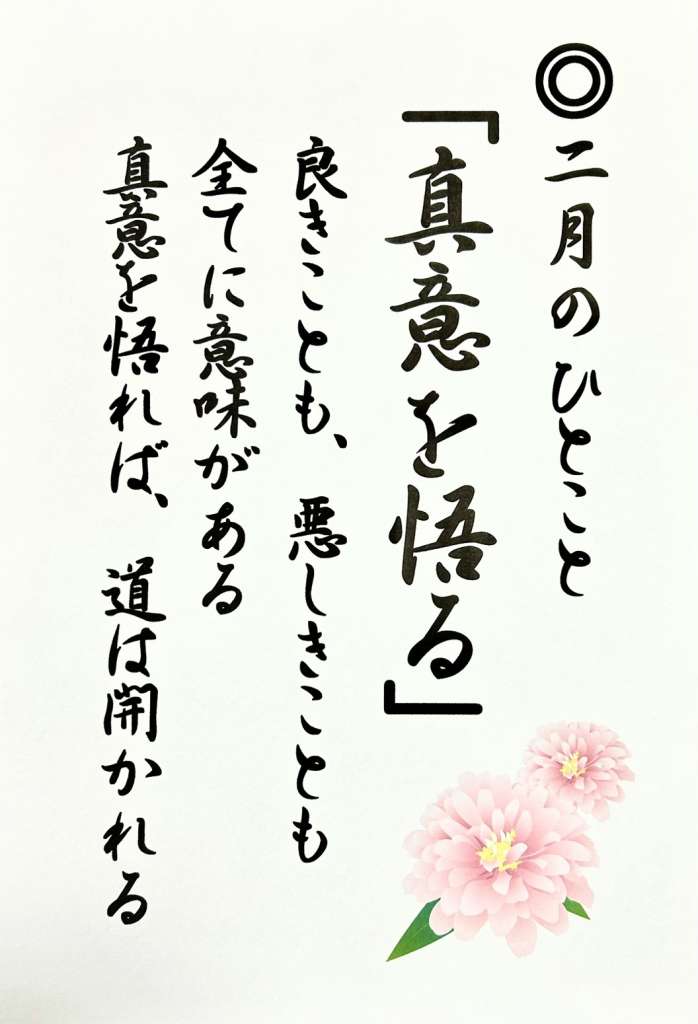 ◎二月のひとこと
「真意を悟る」
良きことも、悪しきことも
全てに意味がある
真意を悟れば、道は開かれる